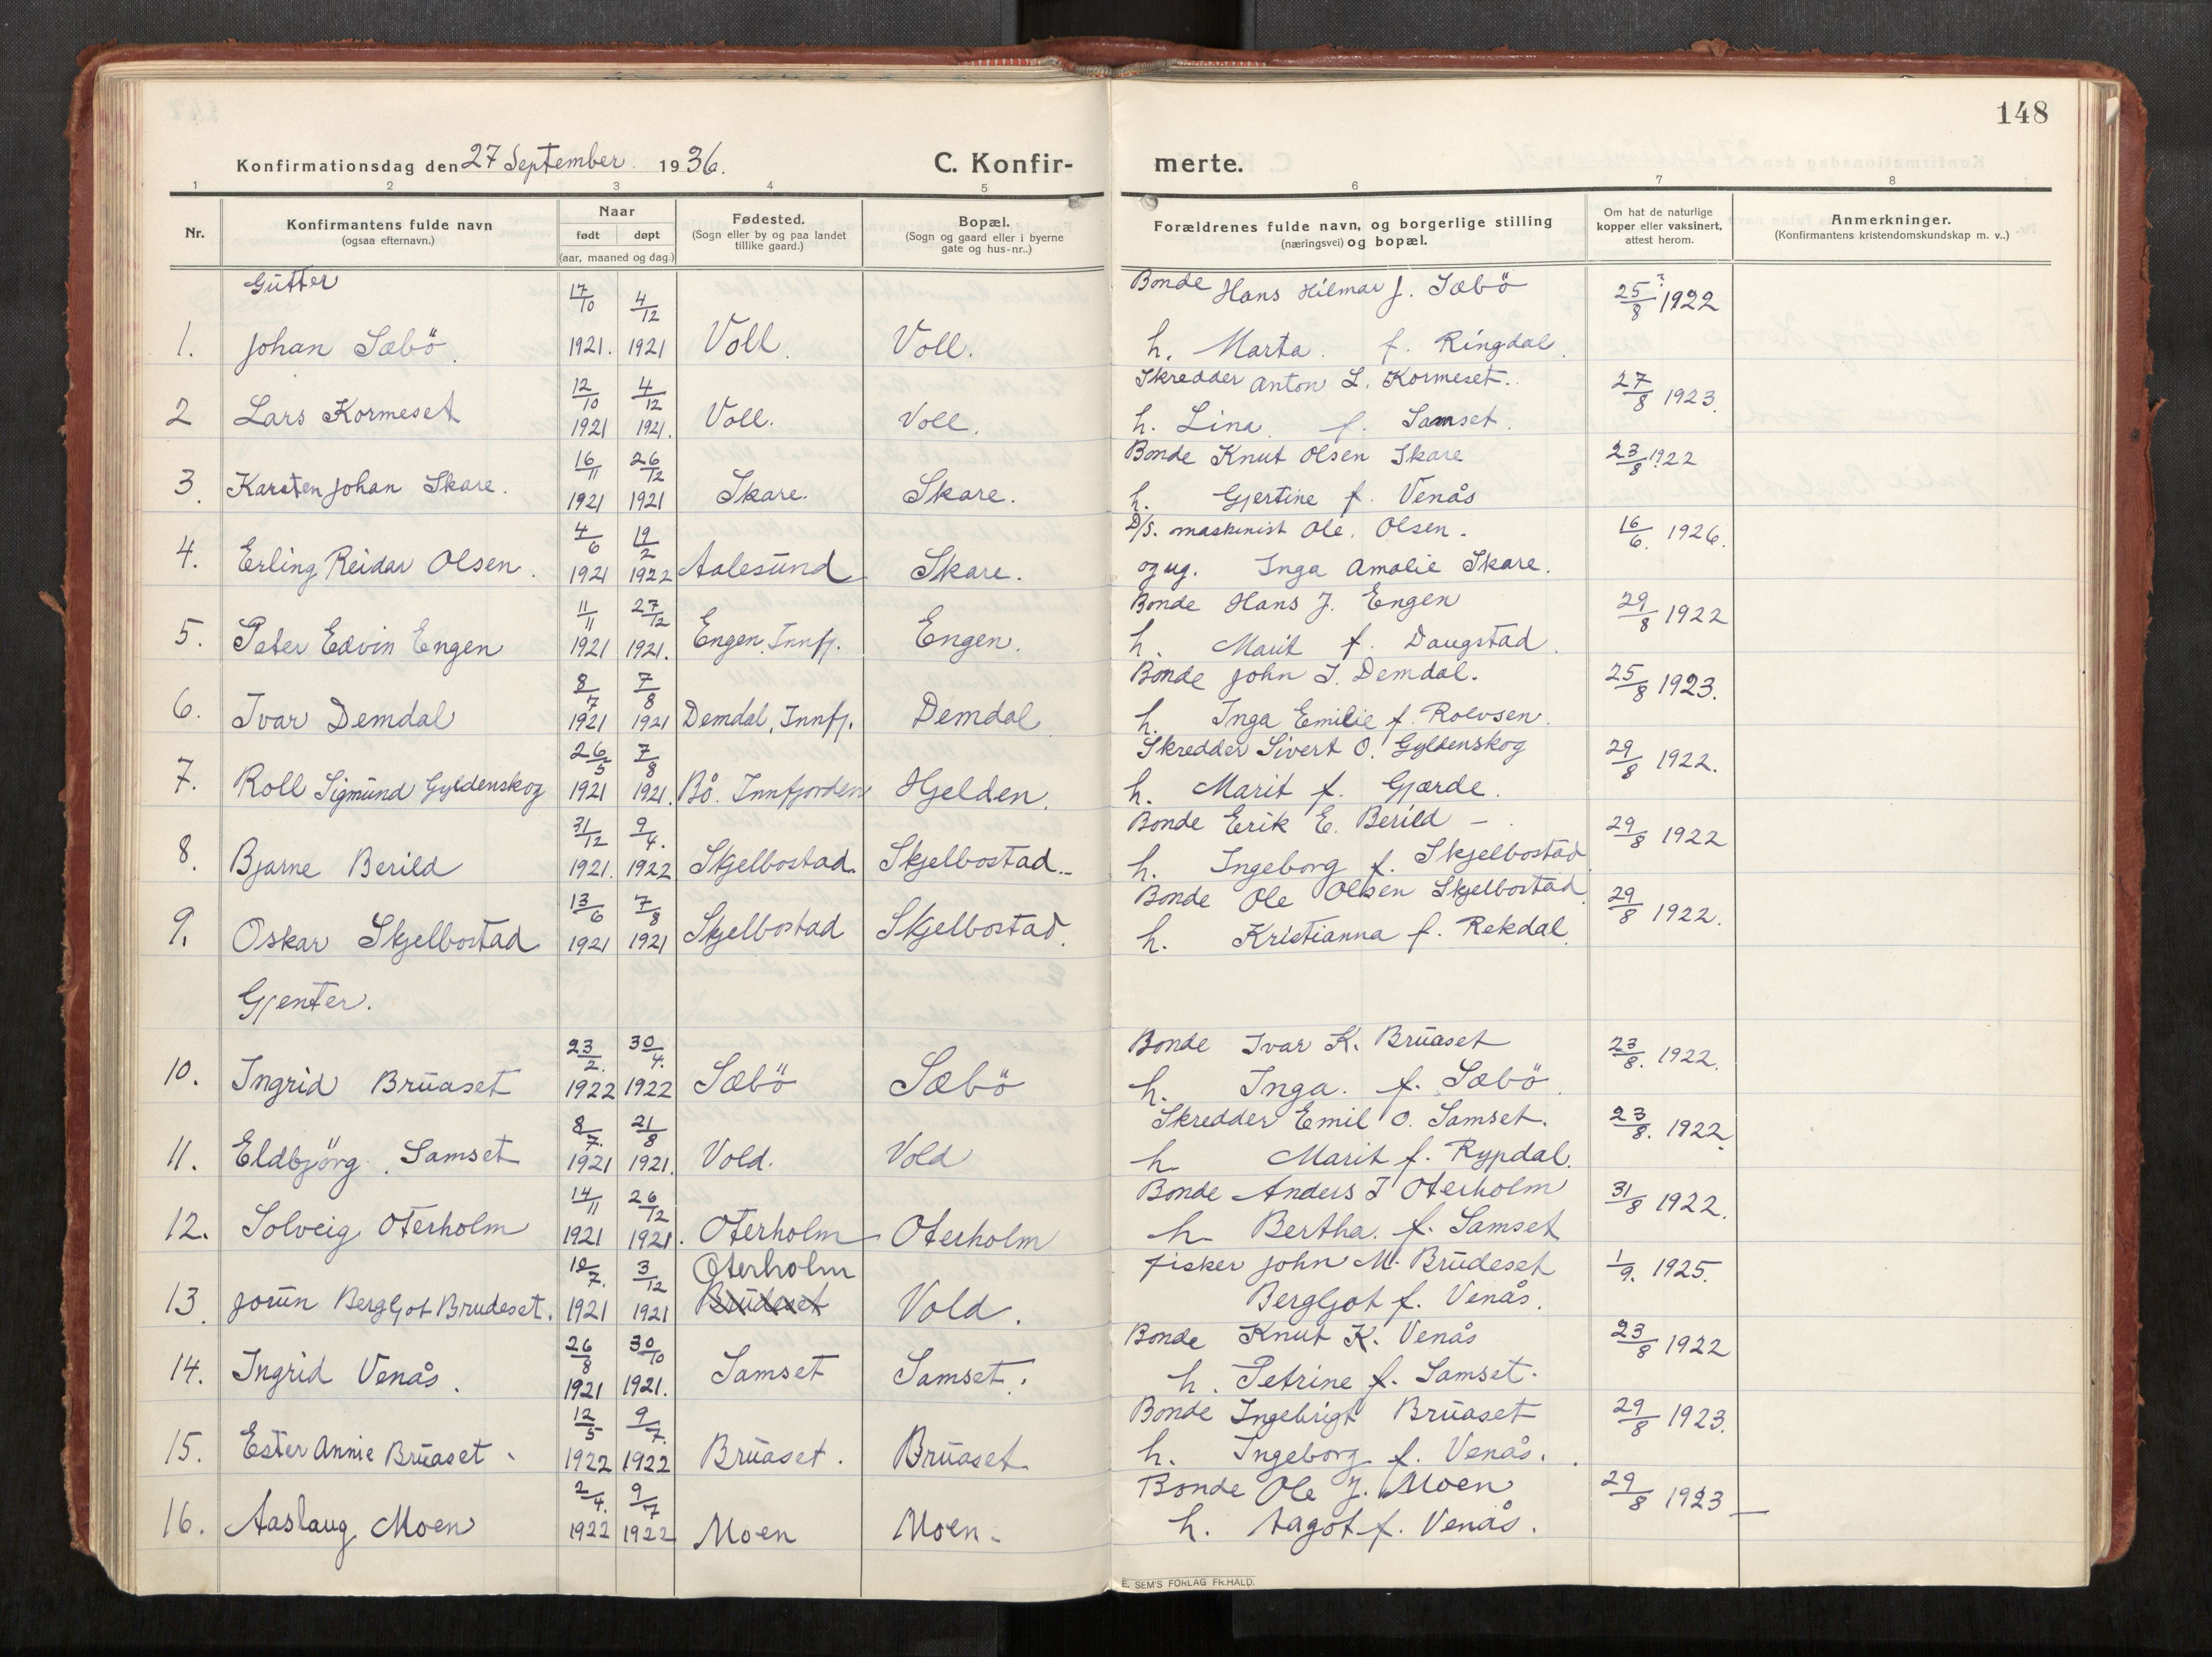 148
Konfirmationsdag den 27 September 1936. C. Konfirmerte.
1 2 3 4 5 6 7 8
Nr.
Konfirmantens fulde navn
(ogsaa efternavn.)
Naar
født døpt
(aar, maaned og dag.)
Fødested.
(Sogn eller by og paa landet
tillike gaard.)
Bopæl.
(Sogn og gaard eller i byerne
gate og hus-nr..)
Forældrenes fulde navn, og borgerlige stilling
(næringsvei) og bopæl.
Om hat de naturlige
kopper eller vaksinert,
attest herom.
Anmerkninger.
(Konfirmantens kristendomskundskap m. v..)
Gutter
17/10 4/12 Bonde Hans Hilmar J. Sæbö 25/8 ? 1922
1. Johan Sæbö. 1921. 1921 Voll. Voll. h. Marta. f. Ringdal.
12/10 4/12 Skredder Anton L. Kormeset. 27/8 1923.
2 Lars Kormeset 1921 1921. Voll. Voll. h. Lina f. Samset.
16/11 26/12 Bonde Knut Olsen Skare 23/8 1922
3. Karsten Johan Skare. 1921 1921 Skare. Skare. h. Gjertine f. Venås
4/6 19/2 D/S. maskinist Ole. Olsen. 16/6. 1926.
4. Erling Reidar Olsen. 1921 1922 Aalesund Skare. og ug. Inga Amalie Skare.
11/11 27/12 Bonde Hans J. Engen 29/8 1922
5. Peter Edvin Engen 1921 1921. Engen, Innfj. Engen. h. Marit f. Daugstad.
8/7 7/8 Bonde John I. Demdal. 25/8 1923.
6. Ivar Demdal 1921 1921 Demdal, Innfj. Demdal h. Inga Emilie f. Rolvsen.
26/5 7/8 Skredder Sivert O. Gyldenskog 29/8 1922.
7. Roll Sigmund Gyldenskog 1921 1921. Bö. Innfjorden Hjelden. h. Marit f. Gjærde.
31/12 9/4. Bonde Erik E. Berild - 29/8 1922
8. Bjarne Berild 1921. 1922 Skjelbostad. Skjelbostad. h. Ingeborg f. Skjelbostad
13/6 7/8 Bonde Ole Olsen Skjelbostad. 29/8 1922.
9. Oskar Skjelbostad 1921 1921 Skjelbostad Skjelbostad. h. Kristianna f. Rekdal
Gjenter.
23/2. 30/4. Bonde Ivar K. Bruaset 23/8. 1922.
10. Ingrid Bruaset 1922 1922 Sæbö Sæbö h. Inga. f. Sæbö
8/7. 21/8 Skredder Emil O. Samset. 23/8. 1922.
11. Eldbjörg Samset 1921 1921. Vold. Vold h. Marit f. Rypdal.
14/11 26/12 Bonde Anders I Oterholm 31/8 1922.
12. Solveig Oterholm 1921 1921. Oterholm Oterholm h. Bertha. f. Samset
3/12 Oterholm Fisker John M. Brudeset 1/9. 1925.
13. Jorun Bergljot Brudeset. 1921 1921 Brudeset Vold. Bergljot f. Venås.
26/8 30/10 Bonde Knut K. Venås 23/8 1922
14. Ingrid Venås. 1921 1921. Samset Samset. h. Petrine f. Samset.
12/5 9/7. Bonde Ingebrigt Bruaset 29/8 1923.
15. Ester Annie Bruaset. 1922 1922 Bruaset. Bruaset h. Ingeborg f. Venås.
2/4. 9/7 Bonde Ole J. Moen 29/8 1923 -
16. Aaslaug Moen 1922 1922 Moen Moen. h. Aagot f. Venås.
E. SEM'S FORLAG FR.HALD.